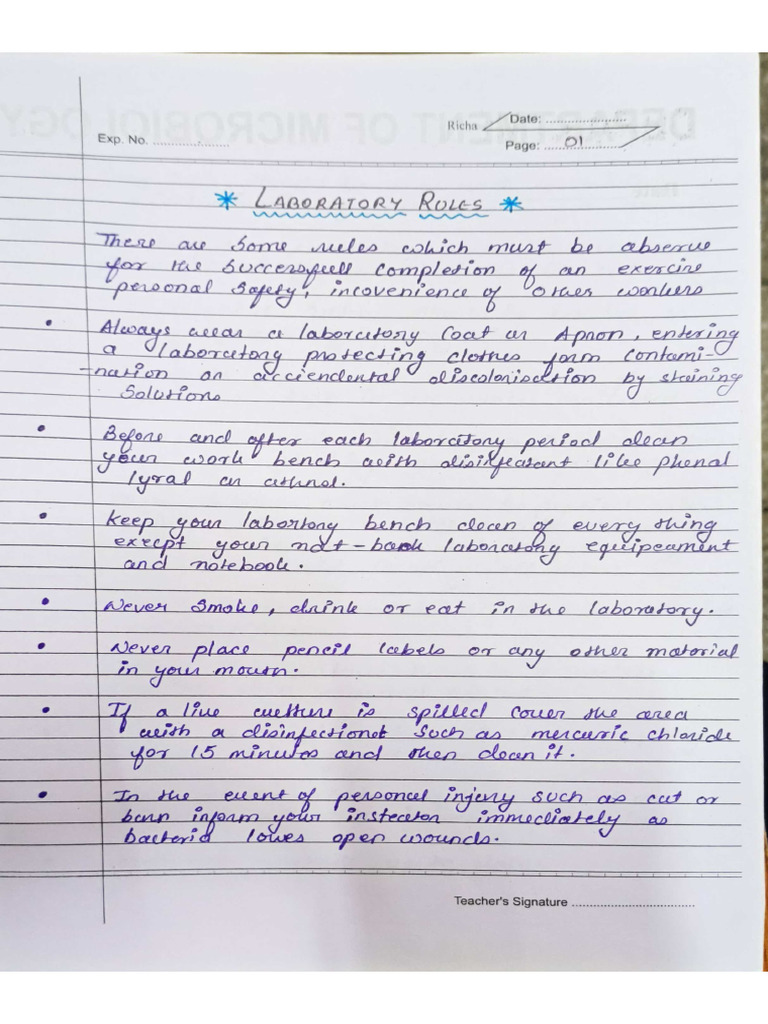 DEPARTMENT OF MICROBIOLOGY
Richa Date: ....................
Exp. No. ....................
Page: ....01....
* LABORATORY RULES *
There are some rules which must be observe
for the successfull completion of an exercise
personal safety, incovenience of other workers
• Always wear a laboratory coat or Apron, entering
a laboratory protecting clothes form contami-
-nation or acciendental discolonisation by staining
Solutions
• Before and after each laboratory period clean
your work bench with disinfectant like phenal
lyral or
• Keep your labortory bench clean of every thing
except your not-book laboratory equipeament
and notebook.
• Never smoke, drink or eat in the laboratory.
• Never place pencil labels or any other material
in your mouth.
• If a live culture is spilled cover the area
with a disinfectionet such as mercuric chloride
for 15 minutes and then clean it.
• In the event of personal injery such as cut or
burn inform your instructor immediately as
bacteria loves open wounds.
Teacher's Signature ....................